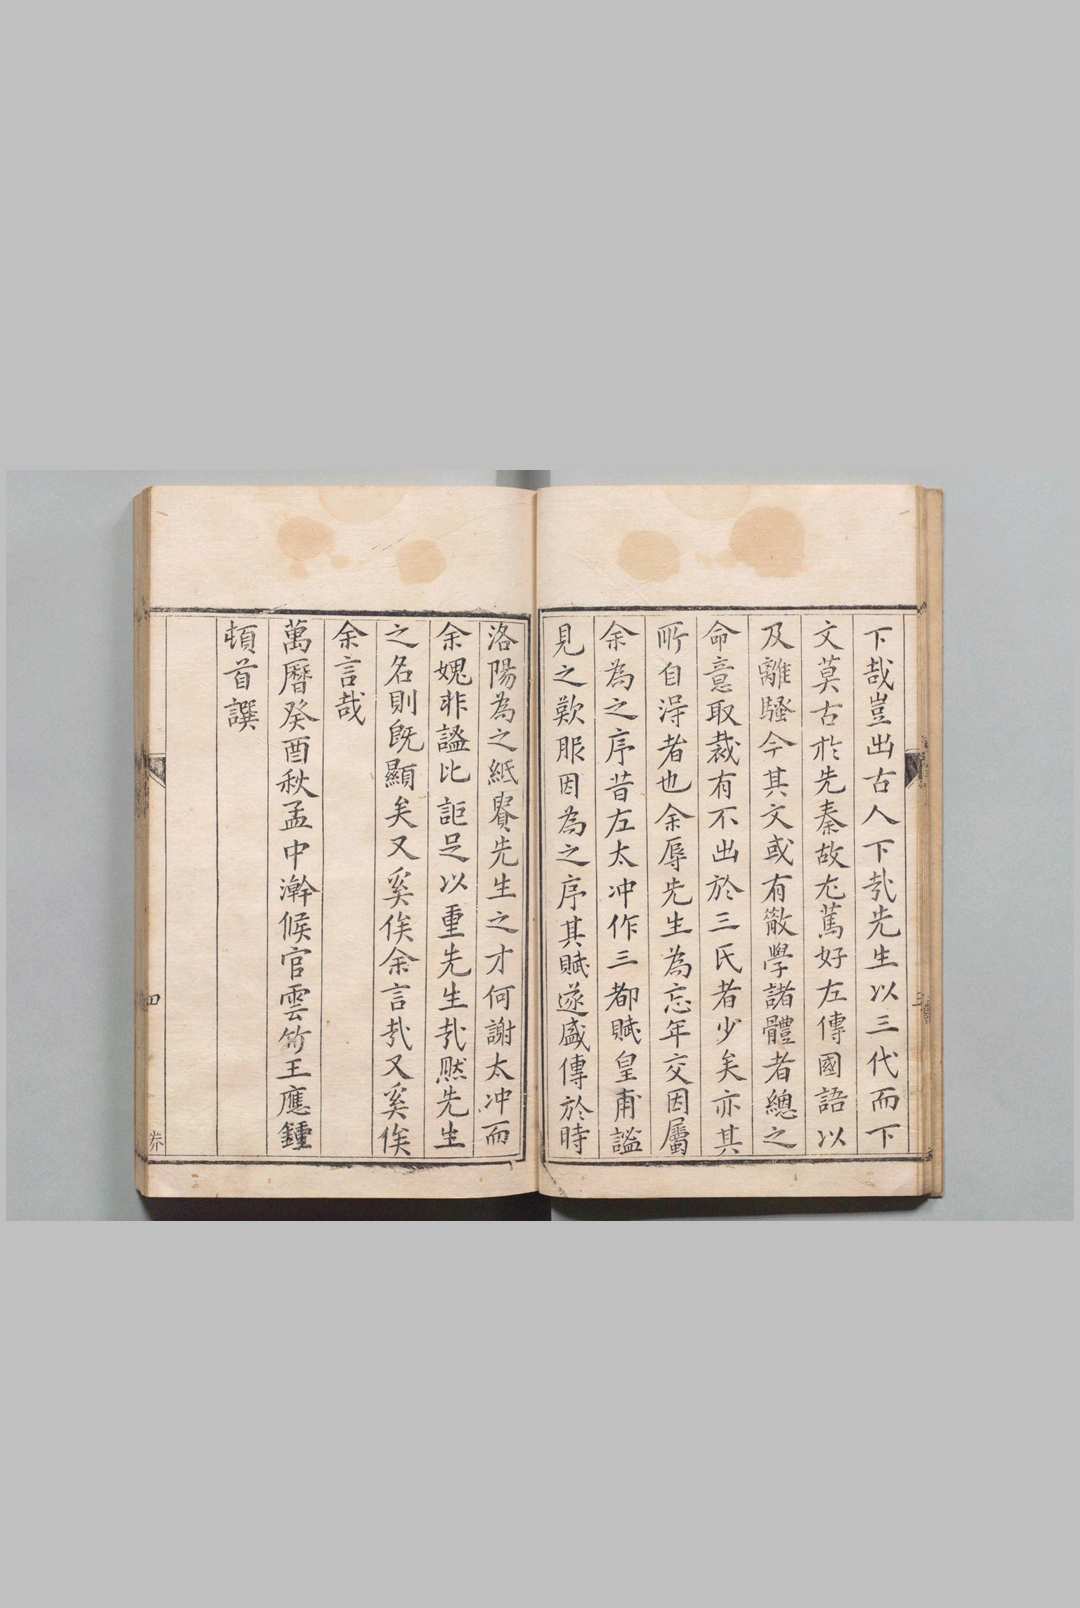 下哉豈出古人下㢤先生以三代而下
文莫古於先秦故尤篤好左傳國語以
及離騷今其文或有散學諸體者總之
命意取裁有不出於三氏者少矣亦其
所自得者也余辱先生為忘年交因屬
余為之序昔左太冲作三都賦皇甫謐
見之歎服因為之序其賦遂盛傳於時
洛陽為之紙貴先生之才何謝太冲而
余媿非謐比詎足以重先生㢤然先生
之名則既顯矣又奚俟余言㢤又奚俟
余言哉
萬曆癸酉秋孟中澣候官雲竹王應鍾
頓首譔
四